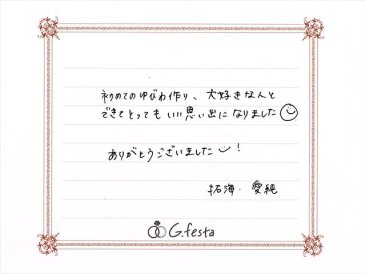 初めてのゆびわ作り、大好きな人と
できてとってもいい思い出になりました
ありがとうございました!
拓海・愛純
G.festa